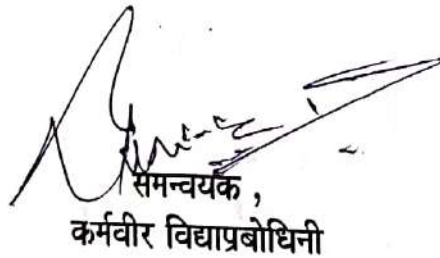 समन्वयक ,
कर्मवीर विद्याप्रबोधिनी